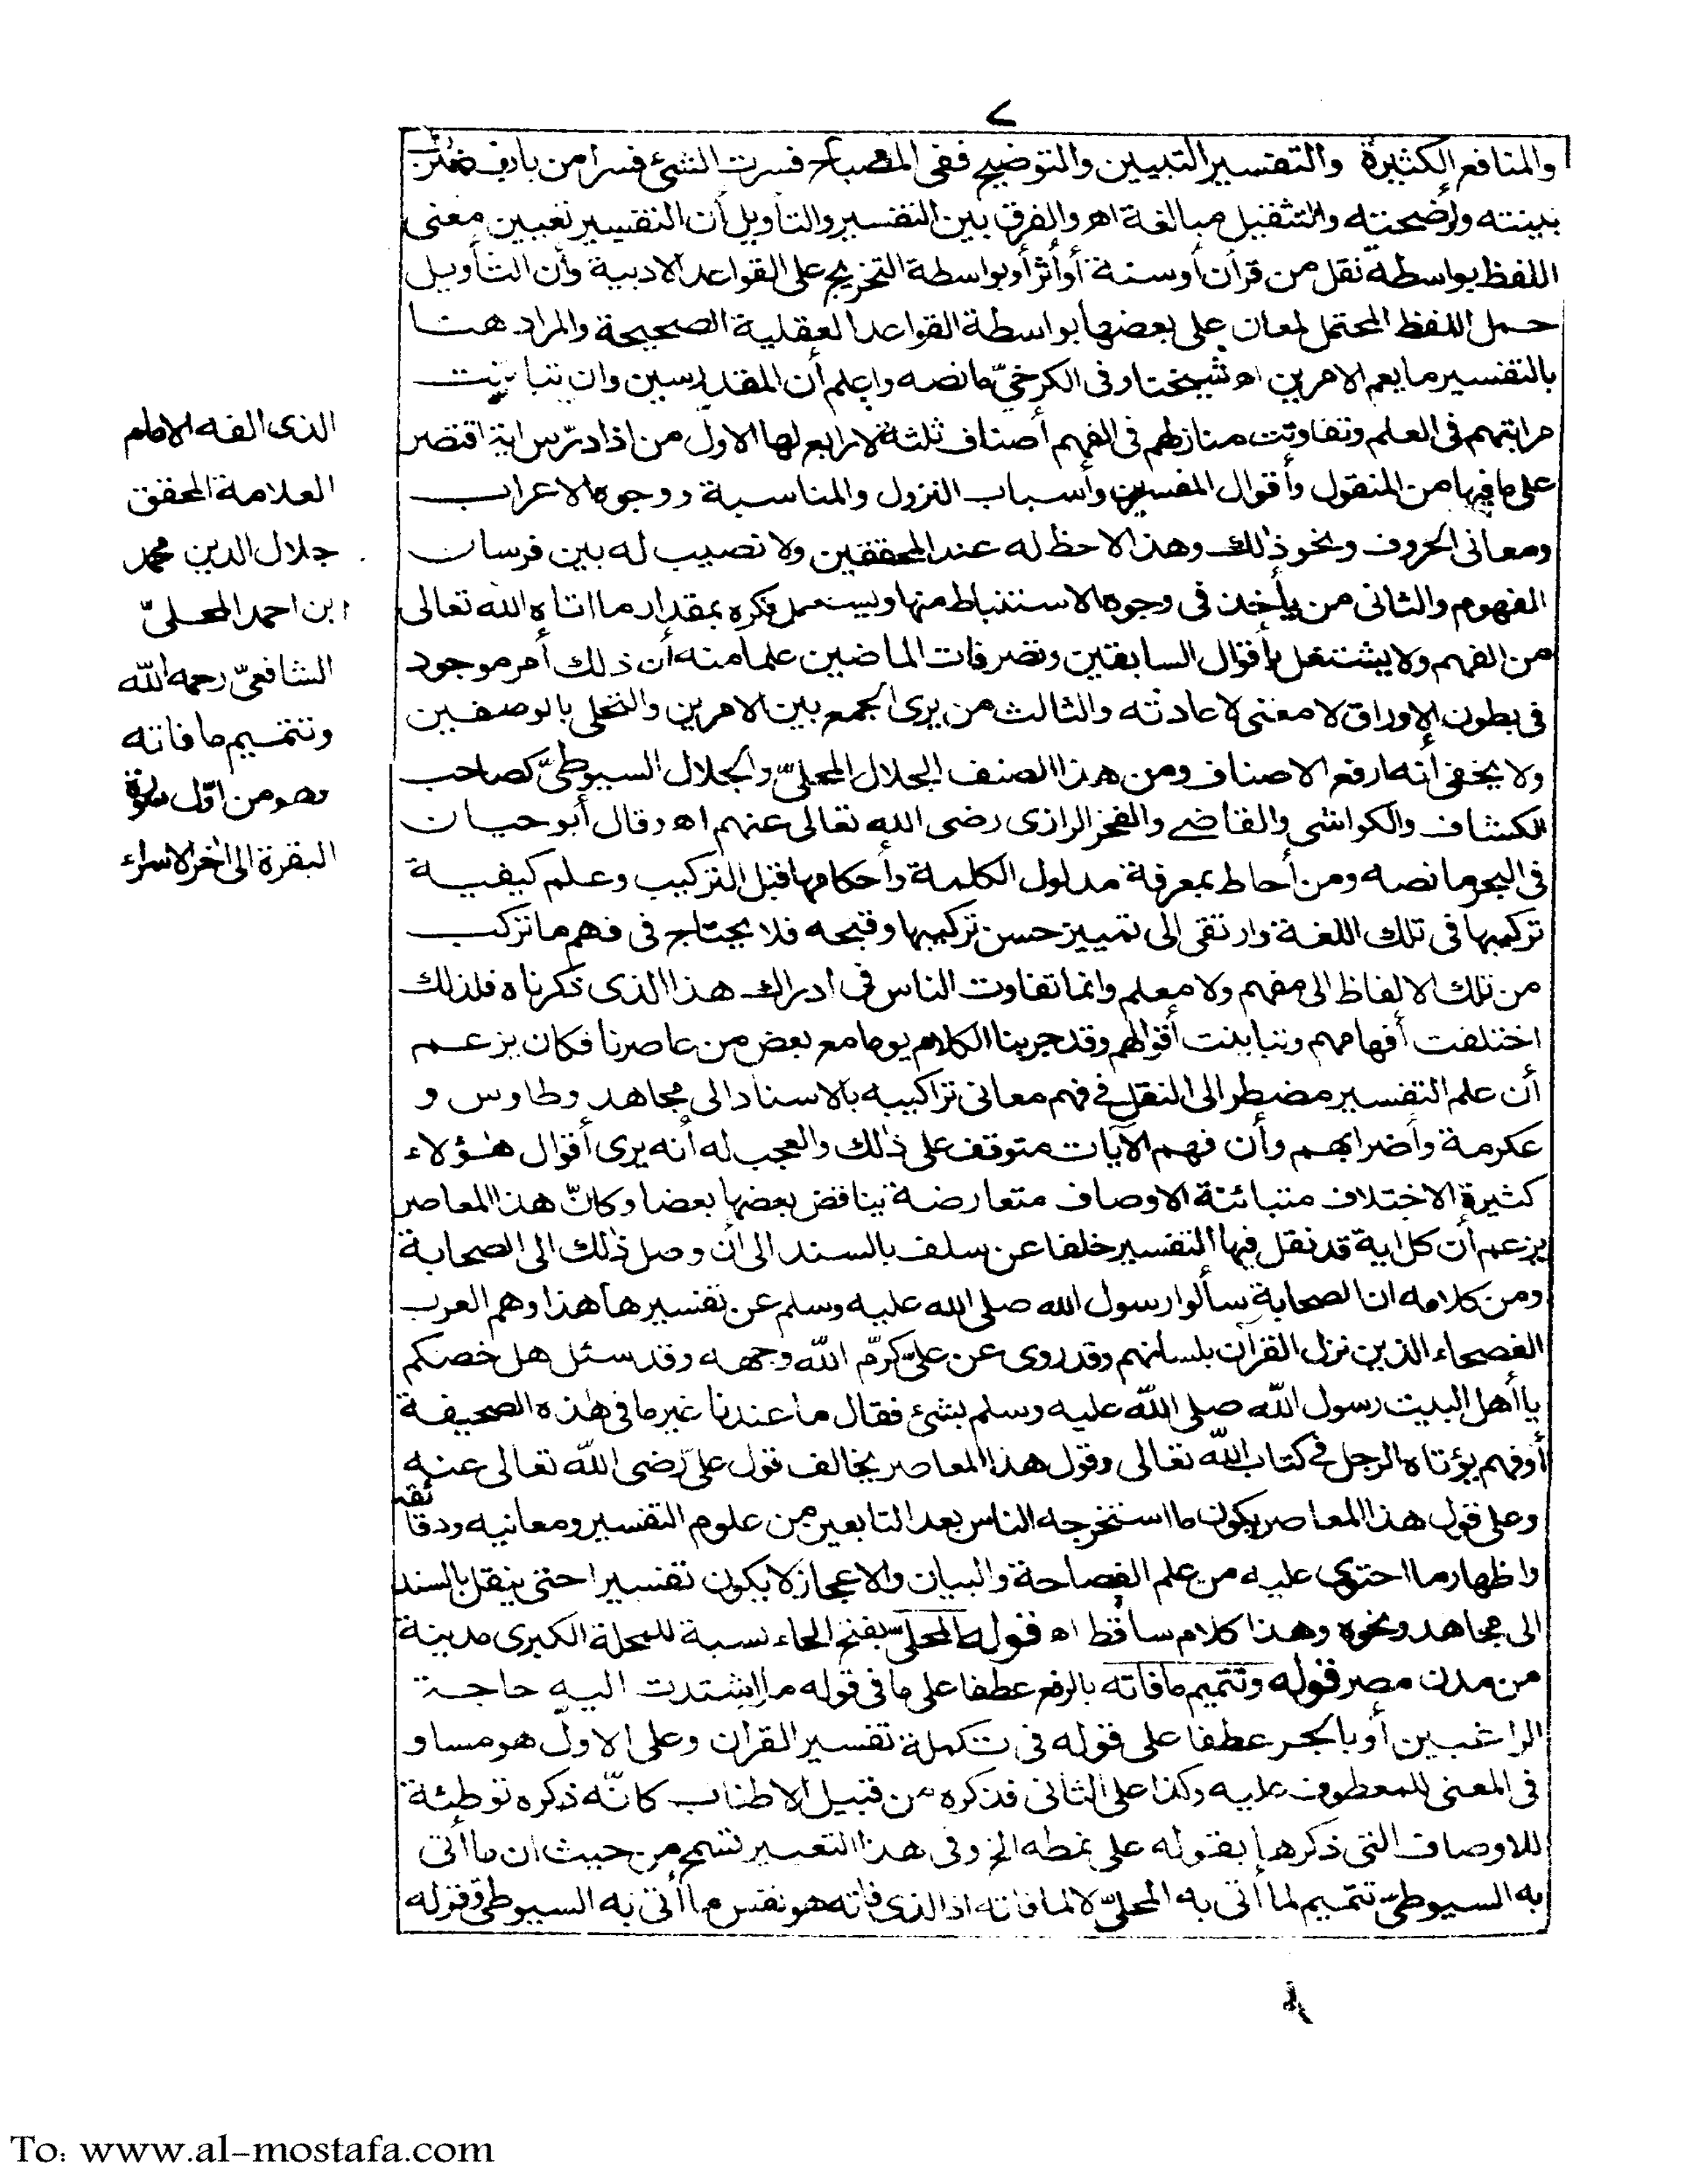 ٢
والمنافع الكثيرة والتفسير التبيين والتوضيح ففى المصباح فسرت الشئ فسرا من باب ضرب
بينته وأوضحته والتثقيل مبالغة اهـ والفرق بين التفسير والتأويل أن التفسير تعيين معنى
اللفظ بواسطة نقل من قرآن أو سنة أو أثر أو بواسطة التخريج على القواعد الادبية وأن التأويل
حمل اللفظ المحتمل لمعان على بعضها بواسطة القواعد العقلية الصحيحة والمراد هنا
بالتفسير ما يعم الامرين اهـ شيخنا وفى الكرخىّ ما نصه واعلم أن المقدرسين وان تباينت
مراتبهم فى العلم وتفاوتت منازلهم فى الفهم أصناف ثلثة لا رابع لها الاول من اذا درّس اية اقتصر
على ما فيها من المنقول وأقوال المفسرين وأسباب النزول والمناسبة ووجوه الاعراب
ومعانى الحروف ونحو ذلك وهذا لا حظ له عند المحققين ولا نصيب له بين فرسان
الفهوم والثانى من يأخذ فى وجوه الاستنباط منها ويستعمل فكره بمقدار ما اتاه الله تعالى
من الفهم ولا يشتغل بأقوال السابقين وتصرفات الماضين علما منه أن ذلك أمر موجود
فى بطون الاوراق لا معنى لاعادته والثالث من يرى الجمع بين الامرين والتحلى بالوصفين
ولا يخفى أنه ارفع الاصناف ومن هذا الصنف الجلال المحلىّ والجلال السيوطىّ كصاحب
الكشاف والكواشى والقاضى والفخر الرازى رضى الله تعالى عنهم اهـ وقال أبو حيان
فى البحر ما نصه ومن أحاط بمعرفة مدلول الكلمة وأحكامها قبل التركيب وعلم كيفية
تركيبها فى تلك اللغة وارتقى الى تمييز حسن تركيبها وقبحه فلا يحتاج فى فهم ما تركب
من تلك الالفاظ الى مفهم ولا معلم وانما تفاوت الناس فى ادراك هذا الذى ذكرناه فلذلك
اختلفت أفهامهم وتباينت أقوالهم وقد جرينا الكلام يوما مع بعض من عاصرنا فكان يزعم
أن علم التفسير مضطر الى النقل فى فهم معانى تراكيبه بالاسناد الى مجاهد وطاوس و
عكرمة وأضرابهم وأن فهم الآيات متوقف على ذلك والعجب له أنه يرى أقوال هؤلاء
كثيرة الاختلاف متبائنة الاوصاف متعارضة يناقض بعضها بعضا وكانّ هذا المعاصر
يزعم أن كل اية قد نقل فيها التفسير خلفا عن سلف بالسند الى أن وصل ذلك الى الصحابة
ومن كلامه ان الصحابة سألوا رسول الله صلى الله عليه وسلم عن تفسيرها هذا وهم العرب
الفصحاء الذين نزل القرآن بلسانهم وقد روى عن علىّ كرّم الله وجهه وقد سئل هل خصكم
يا أهل البيت رسول الله صلى الله عليه وسلم بشئ فقال ما عندنا غير ما فى هذه الصحيفة
أو فهم يؤتاه الرجل فى كتاب الله تعالى وقول هذا المعاصر يخالف قول علىّ رضى الله تعالى عنه
وعلى قول هذا المعاصر يكون ما استخرجه الناس بعد التابعين من علوم التفسير ومعانيه ودقائقه
واظهار ما احتوى عليه من علم الفصاحة والبيان والاعجاز لا يكون تفسيرا حتى ينقل بالسند
الى مجاهد ونحوه وهذا كلام ساقط اهـ قوله المحلىّ بفتح الحاء نسبة للمحلة الكبرى مدينة
من مدن مصر قوله وتتميم ما فاته بالرفع عطفا على ما فى قوله ما اشتدت اليه حاجة
الراغبين أو بالجر عطفا على قوله فى تكملة تفسير القرآن وعلى الاول هو مساو
فى المعنى للمعطوف عليه وكذا على الثانى فذكره من قبيل الاطناب كانّه ذكره توطئة
للاوصاف التى ذكرها بقوله على نمطه الخ وفى هذا التعبير تسمح من حيث ان ما أتى
به السيوطىّ تتميم لما أتى به المحلىّ لا لما فاته اذ الذى فاته هو نفس ما أتى به السيوطى وقوله
الذى الفه الامام
العلامة المحقق
جلال الدين محمد
ابن احمد المحلىّ
الشافعىّ رحمه الله
وتتميم ما فاته
وهو من اوّل سورة
البقرة الى اخر الاسراء
To: www.al-mostafa.com